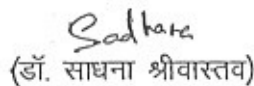 Sadhana
(डॉ. साधना श्रीवास्तव)